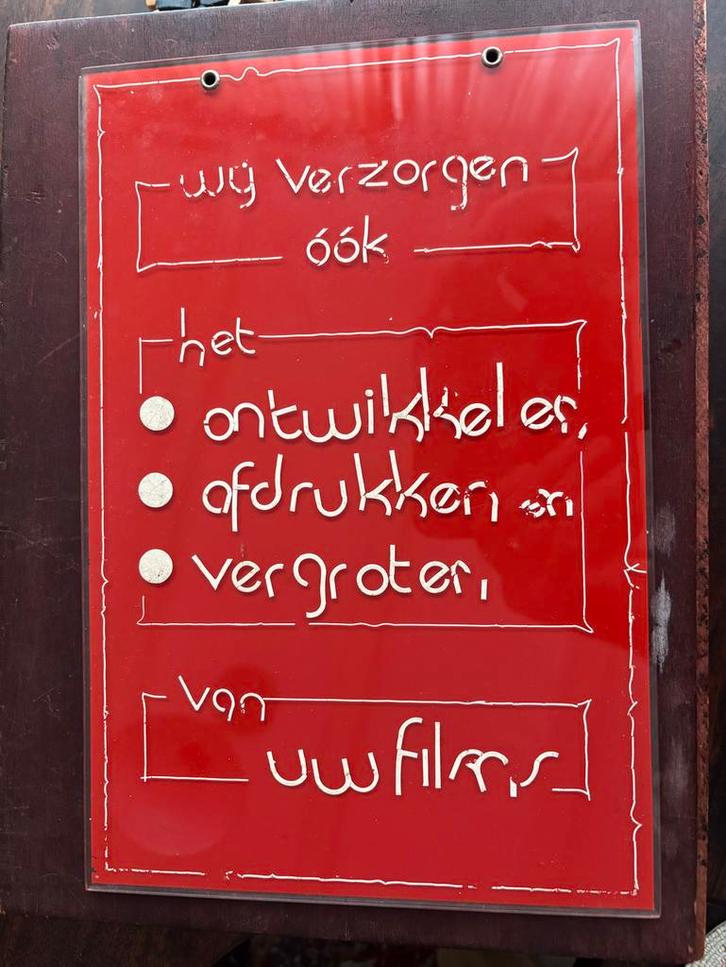 wij verzorgen
óók
het
ontwikkelen,
afdrukken en
vergroten
van
uw films